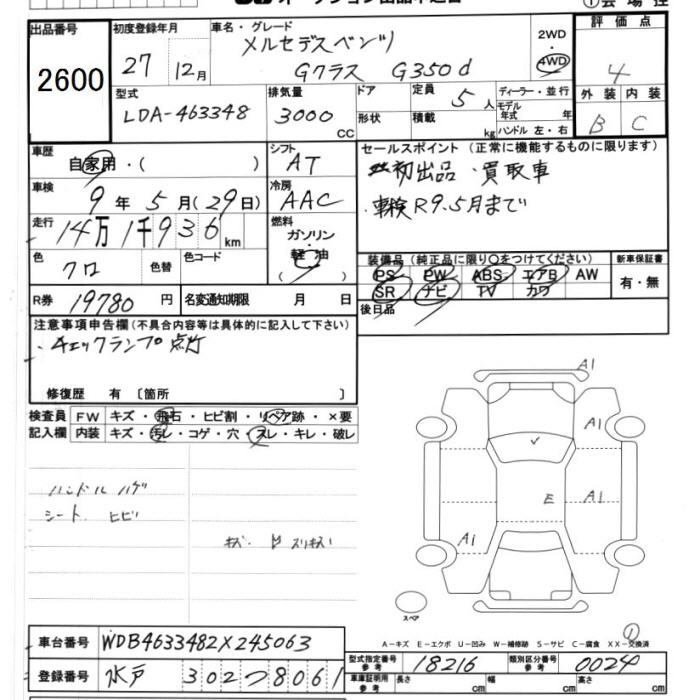 出品番号 2600
初度登録年月 27 12月
車名・グレード メルセデスベンツ
Gクラス G350d
2WD・4WD
評価点 4
外装 B 内装 C
型式 LDA-463348
排気量 3000 CC
ドア 形状
定員 5人
積載 kg
ディーラー・並行
モデル年式 年
ハンドル 左・右
車歴 自家用・( )
シフト AT
車検 9年5月(29日)
冷房 AAC
走行 14万1千936km
燃料 ガソリン・軽油 ( )
色 クロ 色替 色コード
R券 19780円 名変通知期限 月 日
セールスポイント (正常に機能するものに限ります)
初出品・買取車
・車検R9.5月まで
装備品 (純正品に限り○をつけてください) 新車保証書
PS PW ABS エアB AW 有・無
SR ナビ TV カワ
後日品
注意事項申告欄 (不具合内容等は具体的に記入して下さい)
・チェックランプ点灯
修復歴 有 〔箇所 〕
検査員 FW キズ・飛石・ヒビ割・リペア跡・×要
記入欄 内装 キズ・汚レ・コゲ・穴・スレ・キレ・破レ
ハンドル ハゲ
シート ヒビ
A1
A1
E A1
A1
スペア
①
A-キズ E-エクボ U-凹み W-補修跡 S-サビ C-腐食 XX-交換済
車台番号 WDB4633482X245063
登録番号 水戸 302つ8061
型式指定番号 参考 18216 類別区分番号 参考 0024
車庫証明用 参考 長さ cm 幅 cm 高さ cm